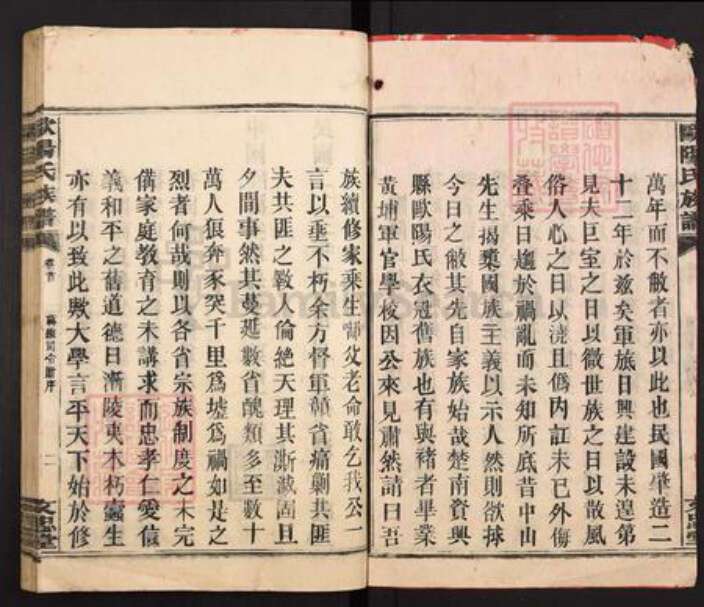 萬年而不敝者亦以此也民國肇造二
十二年於茲矣軍旅日興建設未遑第
見夫巨室之日以微世族之日以散風
俗人心之日以澆且偽內訌未已外侮
疊乘日趨於禍亂而未知所底昔中山
先生揭櫫國族主義以示人然則欲捄
今日之敝其先自家族始哉楚南資興
縣歐陽氏衣冠舊族也有與褚者畢業
黃埔軍官學校因公來見肅然請曰吾
族續修家乘生啣父老命敢乞我公一
言以垂不朽余方督軍贛省痛剿共匪
夫共匪之敎人倫絕天理其澌滅固旦
夕間事然其蔓延數省醜類多至數十
萬人狼奔豕突千里為墟為禍如是之
烈者何哉則以各省宗族制度之未完
備家庭教育之未講求而忠孝仁愛信
義和平之舊道德日漸陵夷木朽蠹生
亦有以致此歟大學言平天下始於修
歐陽氏族譜
卷首
二
歐陽氏族譜